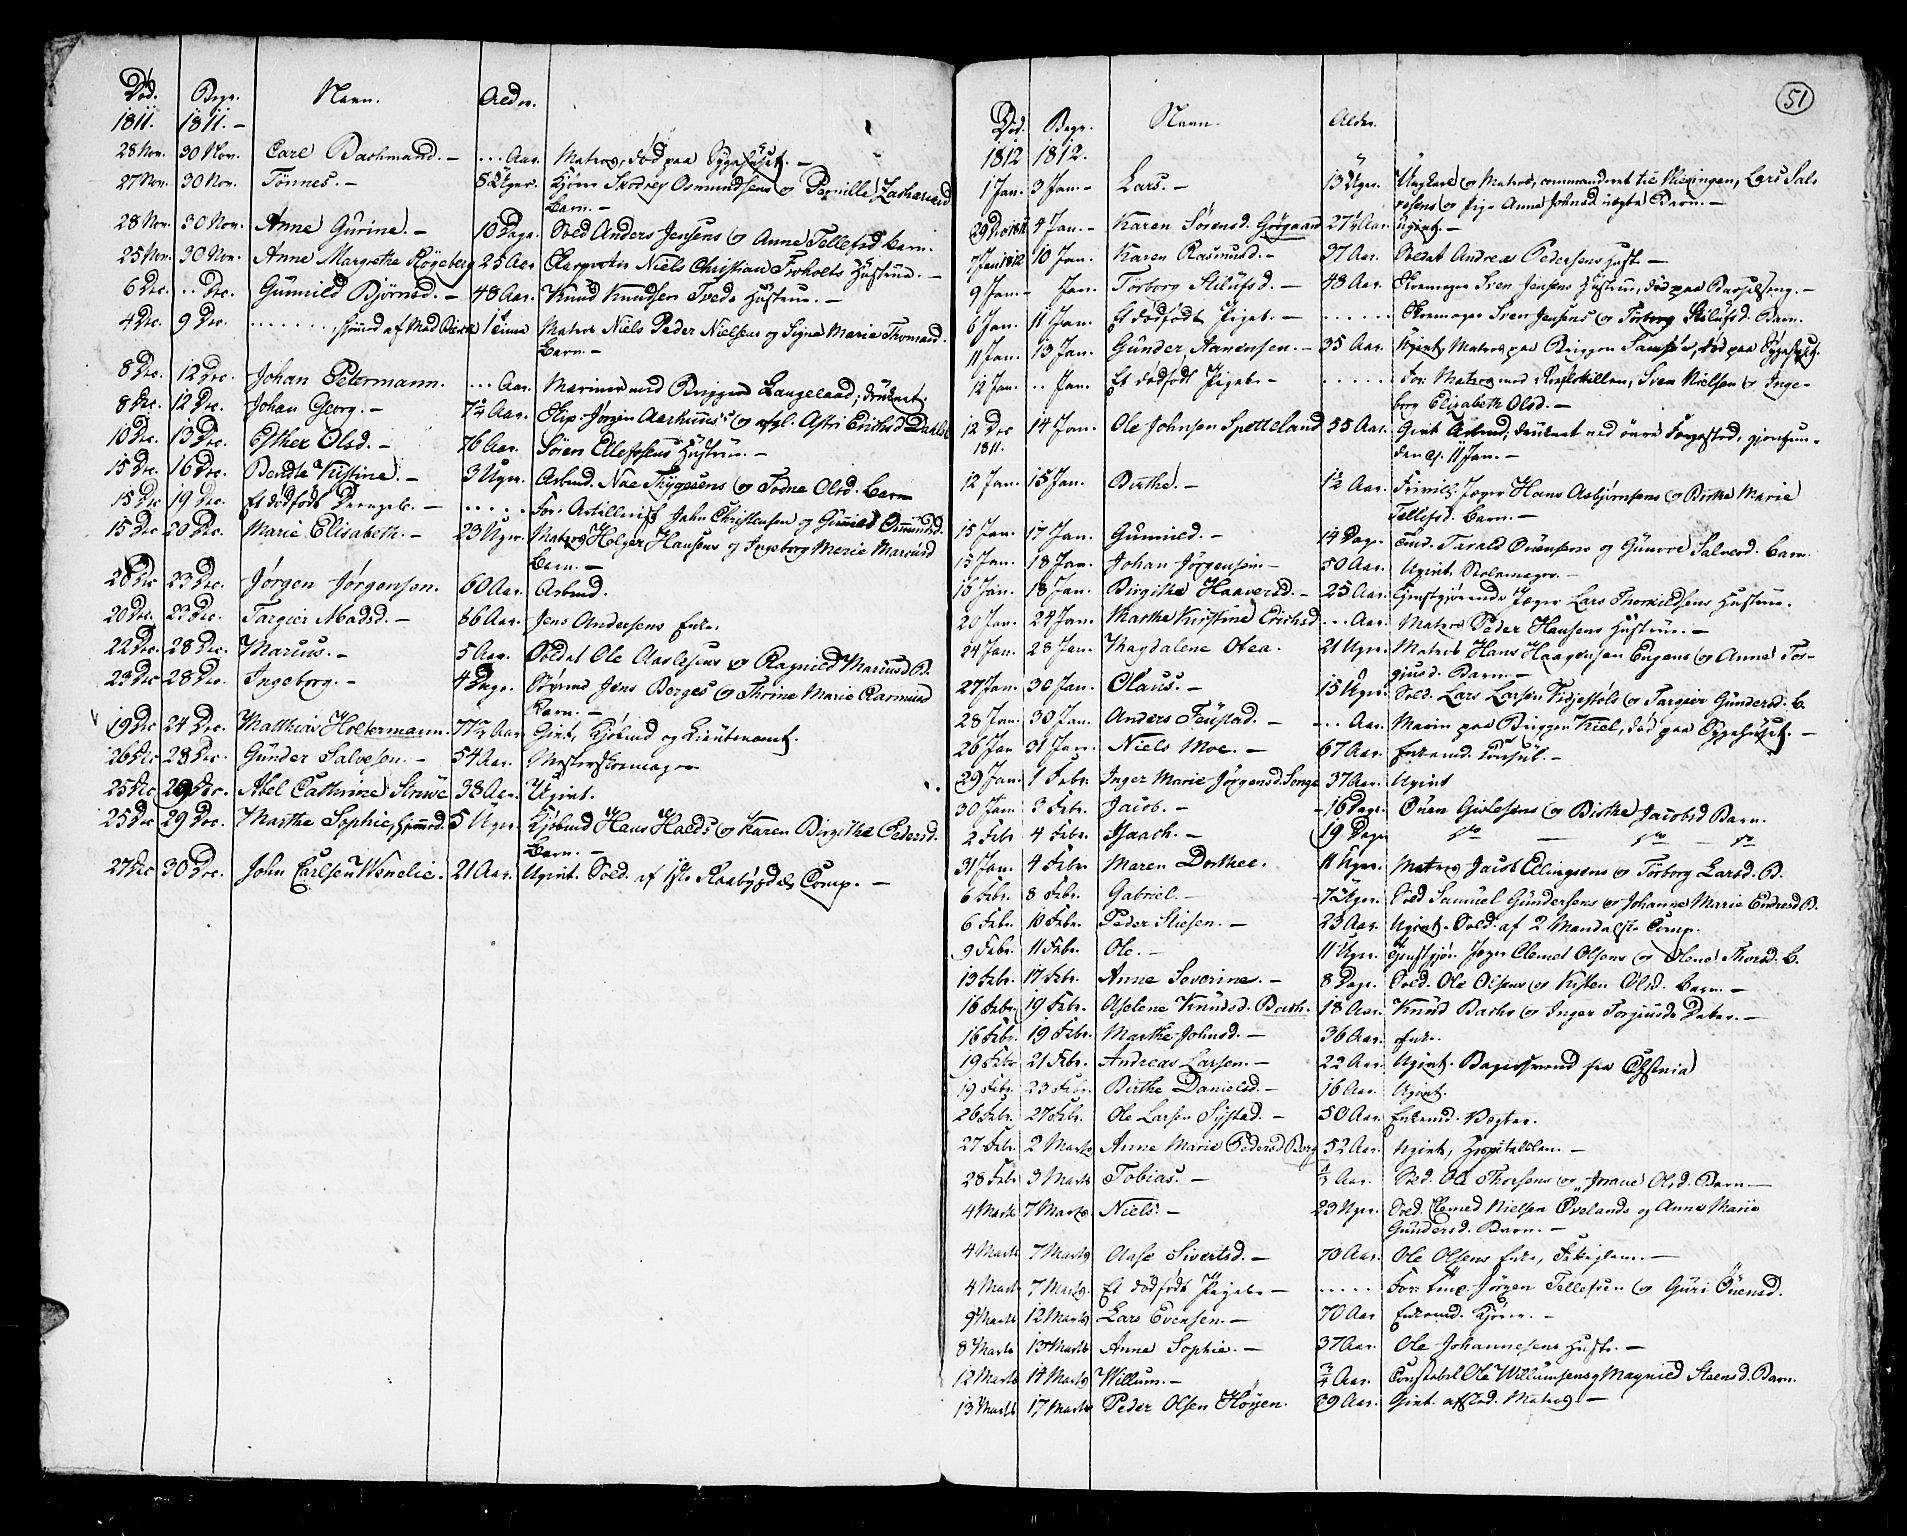 Død. Begr. Navn. Alder.
1811. 1811. –
28 Nov. 30 Nov. Carl Bachmand. – ... Aar. Matros, død paa Sygehuset. –
27 Nov. 30 Nov. Tönnes. – 5 Uger. Osmundsens og Pernille Zachariasd
Barn. –
28 Nov. 30 Nov. Anne Gurine. – 10 Dage. Sold Anders Jensens og Anne Tellefsd. Barn.
25 Nov. 30 Nov. Anne Margrethe Rögeberg 25 Aar Niels Christian Froholts Hustrue. –
6 Dec. .. Dec. Gunnild Björnsd. – 48 Aar. Knud Knudsen Tveds Hustrue. –
4 Dec. 9 Dec. ........ 1 Time Matros Niels Peder Nielsen og Signe Marie Thomasd.
Barn. –
8 Dec. 12 Dec. Johan Petermann. ... Aar. Mariner med Briggen Langeland, druknet.
8 Dec. 12 Dec. Johan Georg. – 7½ Aar. Skip. Jørgen Aarhuus's og afgl. Astri Erichsd
10 Dec. 13 Dec. Esther Olsd. – 76 Aar. Sören Ellefsens Hustrue. –
15 Dec. 16 Dec. Bendte Kistine. – 3 Uger. Arbmd. Noe Thygesens og Todne Olsd. Barn
15 Dec 19 Dec. Et dödfödt Drengeb. – ..... For. Artillerist John Christensen og Gunild Osmundsd.
15 Dec 20 Dec. Marie Elisabeth. – 23 Uger. Matros Holger Hansens og Ingeborg Marie
Barn. –
20 Dec 23 Dec. Jørgen Jørgensen. 60 Aar. Arbmd.
20 Dec. 23 Dec. Targier Madsd. – 66 Aar. Jens Andersens Enke.
22 Dec. 28 Dec. Marius. – 5 Aar. Soldat Ole Aaslesens og Ragnild Mariusd B.
23 Dec 28 Dec. Ingeborg. – 4 Dage. Jens Berges og Thrine Marie Rasmusd
Barn. –
19 Dec 24 Dec. Matthias Holtermann. 77½ Aar. Givt, Kjöbmd og Lieutenant.
26 Dec 28 Dec. Gunder Salvesen. – 54 Aar. Mesterskoemager
25 Dec 29 Dec. Abel Cathrine Struve 38 Aar. Ugivt.
25 Dec 29 Dec. Marthe Sophie, 5 Uger. Kjöbmd Hans og Karen Birgithe Pedersd.
Barn. –
27 Dec 30 Dec. John Carlsen 21 Aar. Ugivt. Sold. af 1ste Raabygdel. Comp. –
51
Død. Begr. Navn. Alder.
1812 1812.
1 Jan. 3 Jan. – Lars. – 13 Uger. Ungkarl og Matros, commanderet til Lars Sal-
vesens og Pige Anne Johnsd. uægte Barn. –
29 Dec 1811 4 Jan. – Karen Sörensd. 27½ Aar. Ugivt. –
7 Jan 1812 10 Jan. Karen Rasmusd. – 37 Aar. Soldat Andreas Pedersens Hust. –
9 Jan. – Jan. Torborg – 48 Aar. Skoemager Sven Jensens Hustrue, död paa Barselseng. –
6 Jan. 11 Jan. Et dödfödt Pigeb. – ...... Skoemager Sven Jensens og Torborg Barn.
11 Jan. 13 Jan. Gunder Aanensen. – 35 Aar. Ugivt, Matros paa Briggen Samsöe, död paa Sygehuset.
12 Jan. .. Jan. Et dödfödt Pigeb. – ...... For. Matros med Sven Nielsen og Inge-
borg Elisabeth Olsd. –
12 Dec 14 Jan. Ole Johnsen Spetteland 55 Aar. Givt Arbmd, druknet ved gjenfun-
1811. den d. 11 Jan. –
12 Jan. 15 Jan. Birthe. – 1½ Aar. Frivil. Jæger Hans Asbjörnsens og Birthe Marie
Tellefsd. Barn. –
15 Jan. 17 Jan. Gunnild. – 14 Dage. Tarald Onænsens og Gunvor Salvesd. Barn.
15 Jan. 18 Jan. Johan Jørgensen – 50 Aar. Ugivt. Stolemager. –
16 Jan. 18 Jan. Birgithe Haaversd. – 25 Aar. Jæger Lars Thorkildsens Hustrue.
20 Jan. 24 Jan. Marthe Kirstine Erichsd ... Aar. Matros Peder Hansens Hustrue. –
24 Jan. 28 Jan. Magdalene Olea. 21 Uger. Matros Hans Haagensen Eugens og Anne Tor-
gjusd. Barn. –
27 Jan. 30 Jan. Olaus. – 15 Uger. Sold. Lars Larsen og Targier Gundersd. B.
28 Jan. 30 Jan. Anders Feustad. – ... Aar. Marin paa Briggen Kiel, död paa Sygehuset. –
26 Jan 31 Jan. Niels Moe. – 67 Aar. Enkemd. Consul. –
29 Jan. 1 Febr. Inger Marie Jørgensd. Songe 37 Aar. Ugivt
30 Jan. 3 Febr. Jacob. – 16 Dage. Onen Gislesens og Birthe Jacobsd Barn.
2 Febr 4 Febr. Isaach. – 19 Dage do – do – do
31 Jan. 4 Febr. Maren Dorthee. 11 Uger. Matros Jacob Ellingsens og Torborg Larsd. B.
6 Febr. 8 Febr. Gabriel. – 7½ Uger. Sold Samuel Gundersens og Johanne Marie Endresd B.
6 Febr. 10 Febr. Peder Stiesen. – 23 Aar. Ugivt. Sold. af 2 Mandalske Comp.
9 Febr. 11 Febr. Ole. – 11 Uger. Jæger Clemet Olsens og Olene Thorsd. B.
13 Febr. 17 Febr. Anne Severine. – 8 Dage. Sold. Ole Olsens og Kisten Olsd. Barn. –
16 Febr. 19 Febr. Aselene Knudsd. Bach. 18 Aar. Knud Bachs og Inger Torjusds Datter. –
16 Febr. 19 Febr. Marthe Johnsd. – 36 Aar. Enke.
19 Febr 21 Febr. Andreas Larsen. – 22 Aar. Ugivt. Bagersvend fra
19 Febr. 23 Febr. Birthe Danielsd. – 16 Aar. Ugivt.
26 Febr. 27 Febr. Ole Larsen Systad. – 50 Aar. Enkemd. Vægter.
27 Febr. 2 Marts Anne Marie Pedersd Berg 52 Aar. Ugivt, Hospitalslem. –
28 Febr 3 Marts Tobias. – Aar. Sold. Ole Thorsens og Olsd. Barn –
4 Marts 7 Marts. Niels. – 23 Uger. Sold. Clemed Nielsen Övelands og Anne Marie
Gundersd. Barn. –
4 Marts 7 Marts Aase Sivertsd. – 70 Aar. Ole Olsens Enke, Fattiglem. –
4 Marts 7 Marts. Et dödfödt Pigeb. – ..... For. Jörgen Tellefsen og Guri Onensd.
9 Marts 12 Marts Lars Evensen. – 70 Aar Enkemd. –
8 Marts 13 Marts Anne Sophie. – 37 Aar. Ole Johannesens Hustr. –
12 Marts 14 Marts Willum. – ¾ Aar. Constabel Ole Willumsens og Magnild Steensd. Barn.
13 Marts 17 Marts Peder Olsen Höyen. 39 Aar. Givt. afsked. Matros. –